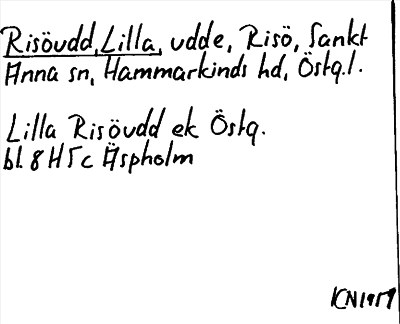 Risöudd, Lilla, udde, Risö, Sankt
Anna sn, Hammarkinds hd, Östg.l.
Lilla Risöudd ek Östg.
bl. 8H5c Äspholm